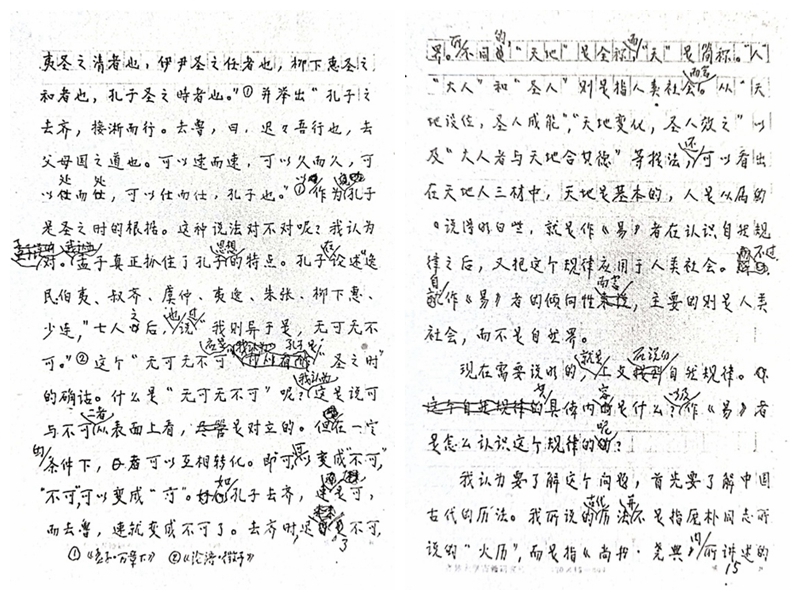 夷圣之清者也,伊尹圣之任者也,柳下惠圣之
和者也,孔子圣之时者也。"①并举出"孔子之
去齐,接淅而行。去鲁,曰,迟々吾行也,去
父母国之道也。可以速而速,可以久而久,可
以处而处,可以仕而仕,孔子也。"①作为孔子
是圣之时的根据。这种说法对不对呢?我认为
对。孟子真正抓住了孔子思想的特点。孔子在论述"逸
民伯夷、叔齐、虞仲、夷逸、朱张、柳下惠、
少连,"七人之后,也说过"我则异于是,无可无不
可。"②这个"无可无不可"我认为"圣之时"
的确诂。什么是"无可无不可"呢?我认为这是说可
与不可二者从表面上看,是对立的。但在一定
的条件下,可以互相转化。即"可"可以变成"不可",
"不可"可以变成"可"。如孔子去齐,速是可,
而去鲁,速就变成不可了。去齐时,迟是不可,
①《孟子·万章下》 ②《论语·微子》
3
界。所不同的,"天地"是全称,而"天"是简称。"人"
"大人"和"圣人"则是指人类社会而言。从"天
地设位,圣人成能","天地变化,圣人效之"以
及"大人者与天地合其德"等提法,还可以看出
在天地人三材中,天地是基本的,人是从属的
。说得明白些,就是作《易》者在认识自然规
律之后,又把这个规律应用于人类社会。不过
自作《易》者的倾向性而言,主要的则是人类
社会,而不是自然界。
现在需要说明的,就是上文所说的自然规律。
具体内容是什么?作《易》者
是怎么认识这个规律的呢?
我认为要了解这个问题,首先要了解中国
古代的历法。我所说的古代历法不是指庞朴同志所
说的"火历",而是指《尚书·尧典》所讲述的
15